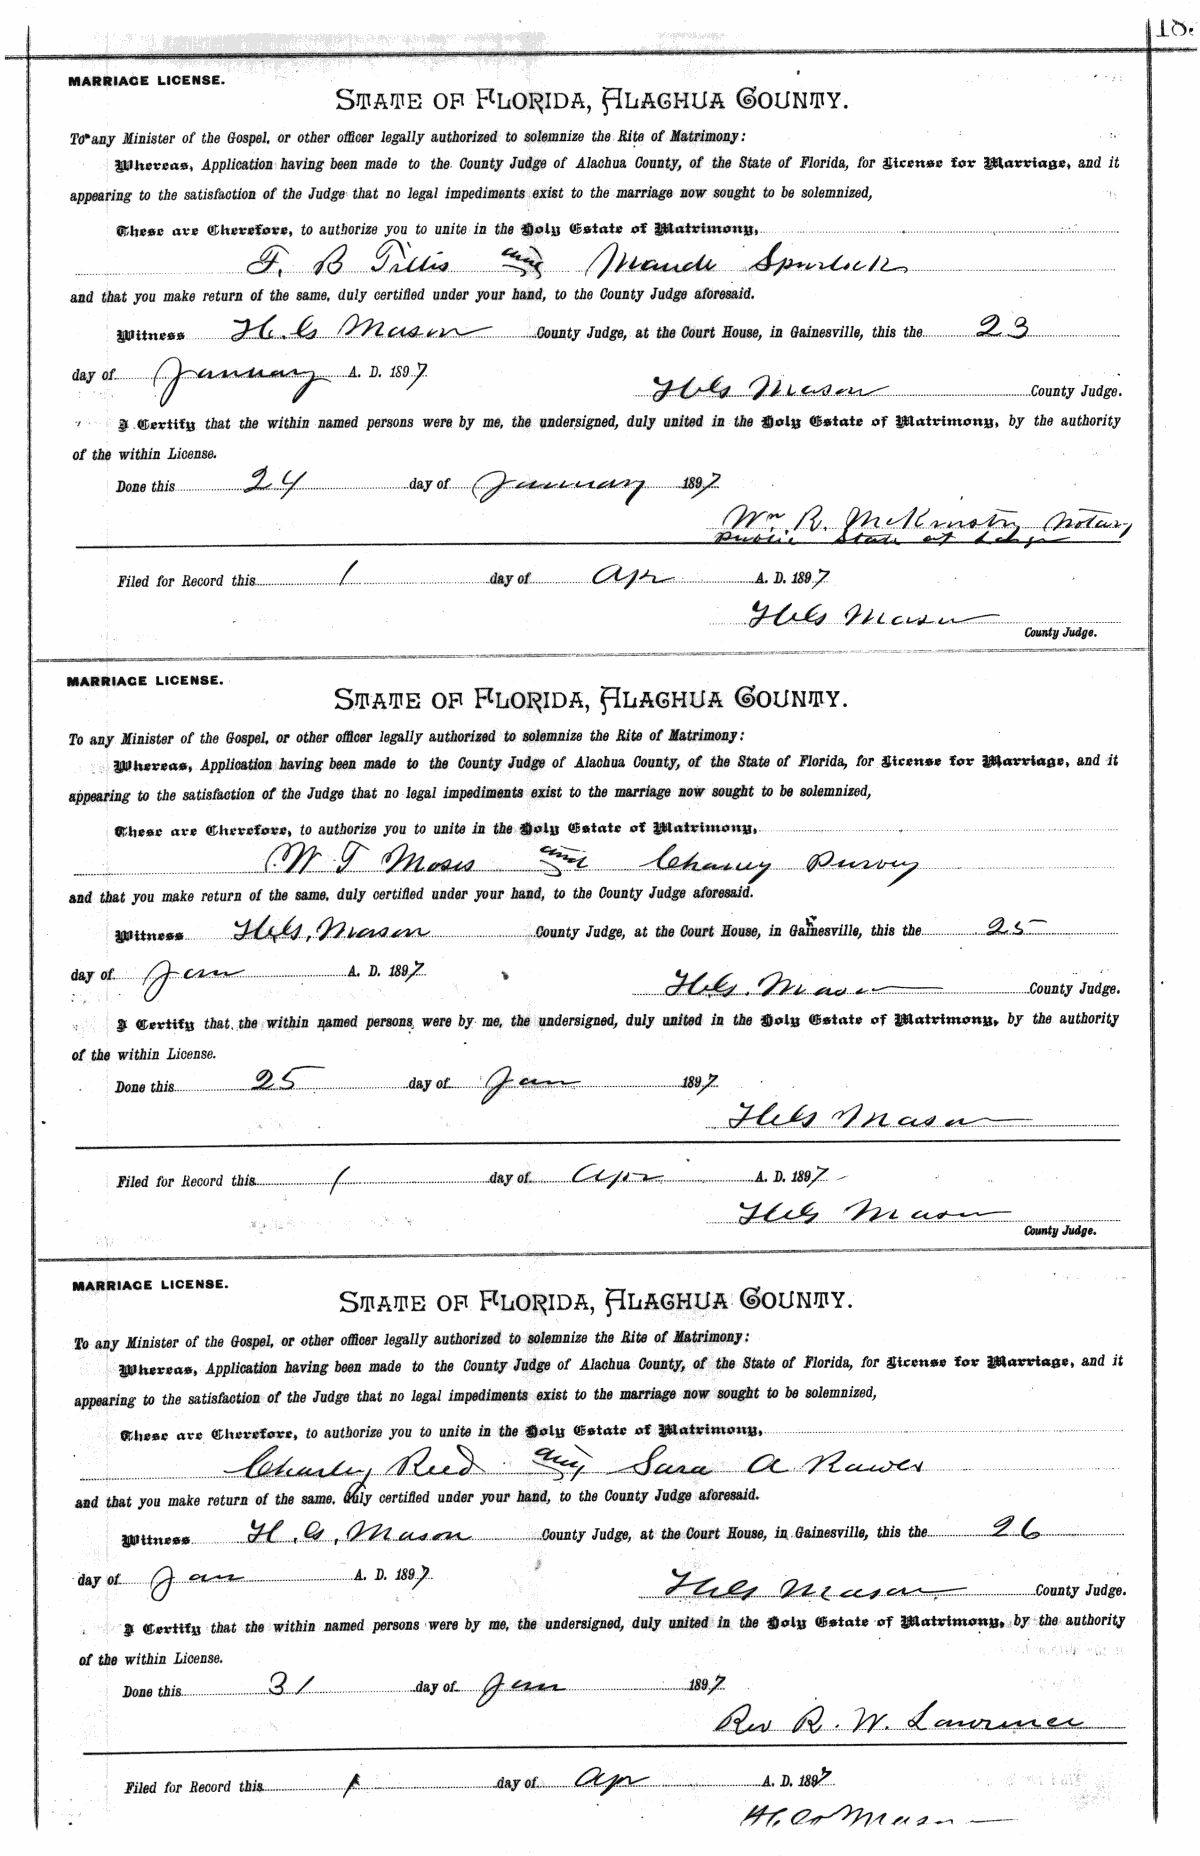 18
MARRIAGE LICENSE.
STATE OF FLORIDA, ALACHUA COUNTY.
To any Minister of the Gospel, or other officer legally authorized to solemnize the Rite of Matrimony:
Whereas, Application having been made to the County Judge of Alachua County, of the State of Florida, for License for Marriage, and it
appearing to the satisfaction of the Judge that no legal impediments exist to the marriage now sought to be solemnized,
These are Therefore, to authorize you to unite in the Holy Estate of Matrimony,
F. B Tillis and Maude Spurlock
and that you make return of the same, duly certified under your hand, to the County Judge aforesaid.
Witness H. G Mason County Judge, at the Court House, in Gainesville, this the 23
day of January A. D. 1897
H G Mason County Judge.
I Certify that the within named persons were by me, the undersigned, duly united in the Holy Estate of Matrimony, by the authority
of the within License.
Done this 24 day of January 1897
Wm. R. McKinstry Notary
Public State at Large
Filed for Record this 1 day of Apr A. D. 1897
H G Mason
County Judge.
MARRIAGE LICENSE.
STATE OF FLORIDA, ALACHUA COUNTY.
To any Minister of the Gospel, or other officer legally authorized to solemnize the Rite of Matrimony:
Whereas, Application having been made to the County Judge of Alachua County, of the State of Florida, for License for Marriage, and it
appearing to the satisfaction of the Judge that no legal impediments exist to the marriage now sought to be solemnized,
These are Therefore, to authorize you to unite in the Holy Estate of Matrimony,
W T Moses and Chaney Purvey
and that you make return of the same, duly certified under your hand, to the County Judge aforesaid.
Witness H G. Mason County Judge, at the Court House, in Gainesville, this the 25
day of Jan A. D. 1897
H G. Mason County Judge.
I Certify that the within named persons were by me, the undersigned, duly united in the Holy Estate of Matrimony, by the authority
of the within License.
Done this 25 day of Jan 1897
H G Mason
Filed for Record this 1 day of Apr A. D. 1897
H G Mason
County Judge.
MARRIAGE LICENSE.
STATE OF FLORIDA, ALACHUA COUNTY.
To any Minister of the Gospel, or other officer legally authorized to solemnize the Rite of Matrimony:
Whereas, Application having been made to the County Judge of Alachua County, of the State of Florida, for License for Marriage, and it
appearing to the satisfaction of the Judge that no legal impediments exist to the marriage now sought to be solemnized,
These are Therefore, to authorize you to unite in the Holy Estate of Matrimony,
Charley Reed and Sara A Rawes
and that you make return of the same, duly certified under your hand, to the County Judge aforesaid.
Witness H. G. Mason County Judge, at the Court House, in Gainesville, this the 26
day of Jan A. D. 1897
H G Mason County Judge.
I Certify that the within named persons were by me, the undersigned, duly united in the Holy Estate of Matrimony, by the authority
of the within License.
Done this 31 day of Jan 1897
Rev R. W. Lawrence
Filed for Record this 1 day of Apr A. D. 1897
H G Mason